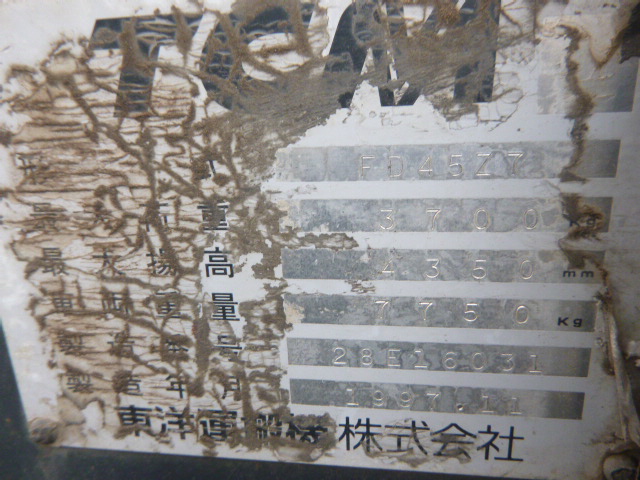 TCM
型 式 FD45Z7
最大荷重 3700 Kg
最大揚高 4350 mm
車両重量 7750 Kg
製造番号 28E16031
製造年月 1997.11
東洋運搬機株式会社